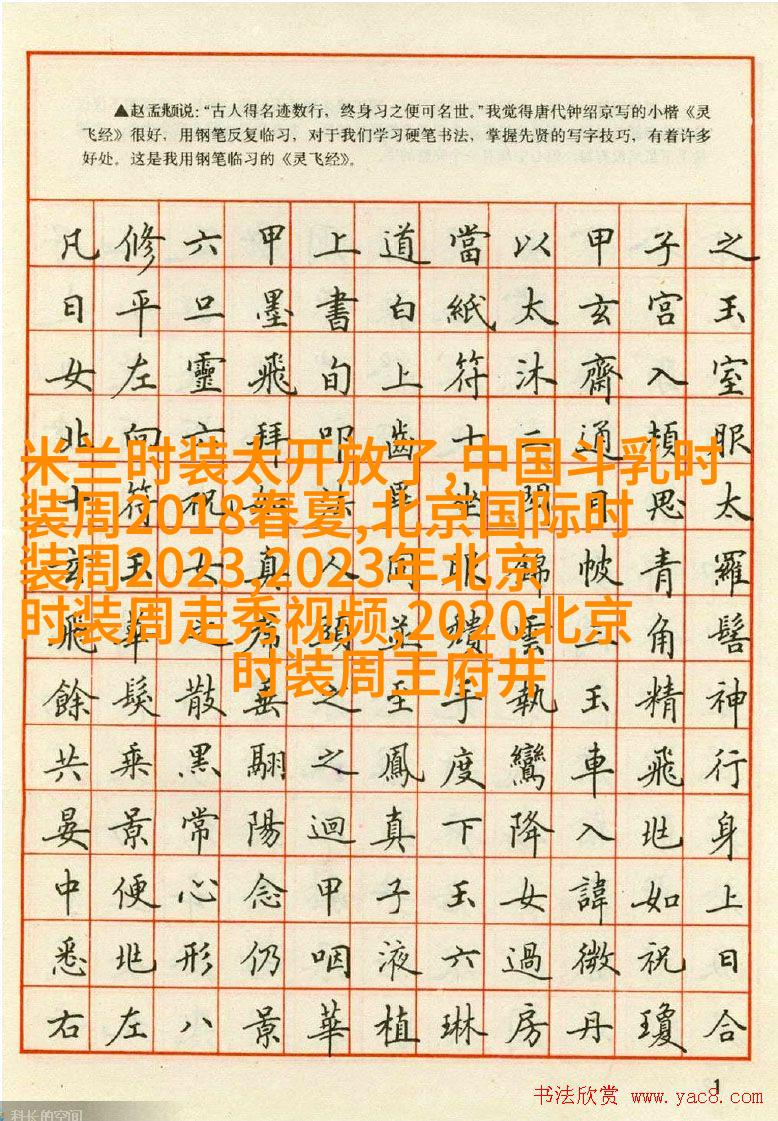 ▲赵孟頫说：“古人得名迹数行，终身习之便可名世。”我觉得唐代钟绍京写的小楷《灵
飞经》很好，用钢笔反复临习，对于我们学习硬笔书法，掌握先贤的写字技巧，有着许多
好处。这是我用钢笔临习的《灵飞经》。
凡修六甲上道當以甲子之
日平旦墨書白紙太玄宮玉
女左靈飛旬上符沐齋入室
北向六拜叩齒十二通頓服
米兰时装太开放了,中国斗乳时
十符祝如法畢坐閉目思太
装周2018春夏,北京国际时
玄玉女真人同服錦帔青羅
装周2023,2023年北京
飛華之裙頭並穨雲三角髻
时装周走秀视频,2020北京
时装周王府井
餘髮散垂之至手執玉精神
共乘黑翮之鳳度鸞車飛行
晏景常陽迴真下降入兆身
中便心念甲子玉女諱如上
悉兆形仍咽液六過微祝日
右左八景華植琳房丹瓊合
1
书法欣赏 www.yac8.com
科长的空间